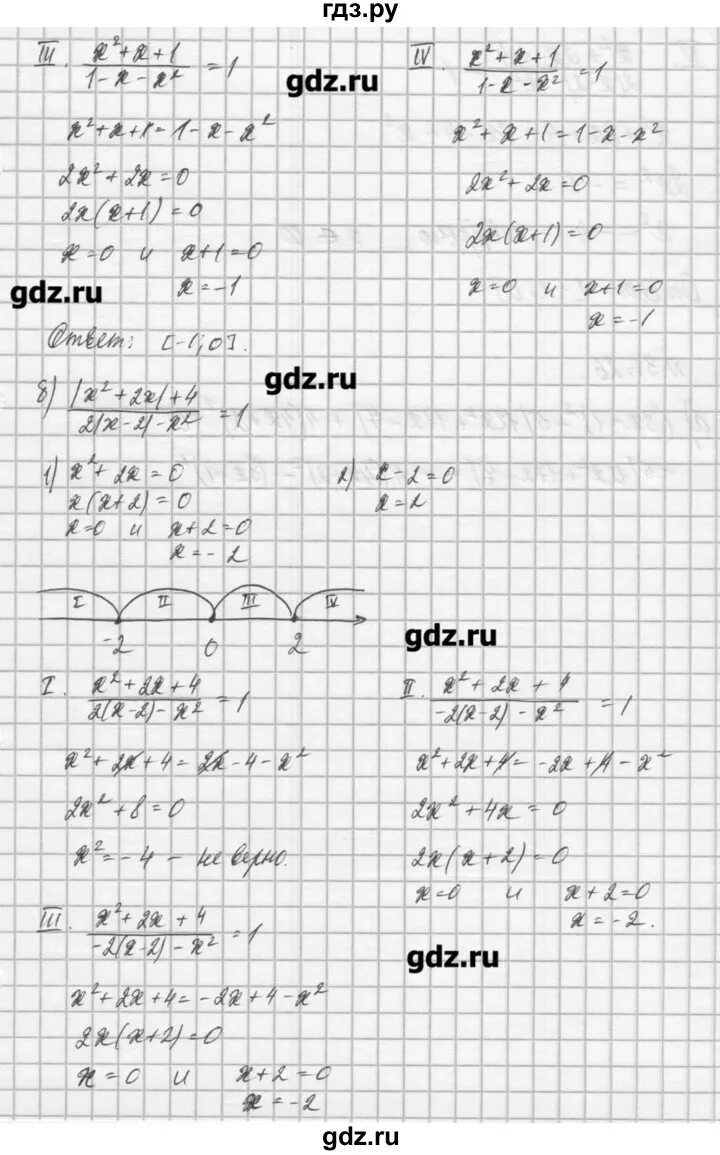 гдз.ру
III. (x²+x+1)/(1-x-x²) = 1
x²+x+1=1-x-x²
2x²+2x=0
2x(x+1)=0
x=0 и x+1=0
x=-1
IV. (x²+x+1)/(1-x-x²) = 1
x²+x+1=1-x-x²
2x²+2x=0
2x(x+1)=0
x=0 и x+1=0
x=-1
gdz.ru
gdz.ru
Ответ: [-1;0].
gdz.ru
б) (|x²+2x|+4)/(2|x-2|-x²) = 1
1) x²+2x=0
x(x+2)=0
x=0 и x+2=0
x=-2
2) x-2=0
x=2
I II III IV
-2 0 2
gdz.ru
I. (x²+2x+4)/(2(x-2)-x²) = 1
x²+2x+4=2x-4-x²
2x²+8=0
x²=-4 - не верно.
II. (x²+2x+4)/(-2(x-2)-x²) = 1
x²+2x+4=-2x+4-x²
2x²+4x=0
2x(x+2)=0
x=0 и x+2=0
x=-2.
III. (x²+2x+4)/(-2(x-2)-x²) = 1
x²+2x+4=-2x+4-x²
2x(x+2)=0
x=0 и x+2=0
x=-2
gdz.ru
gdz.ru